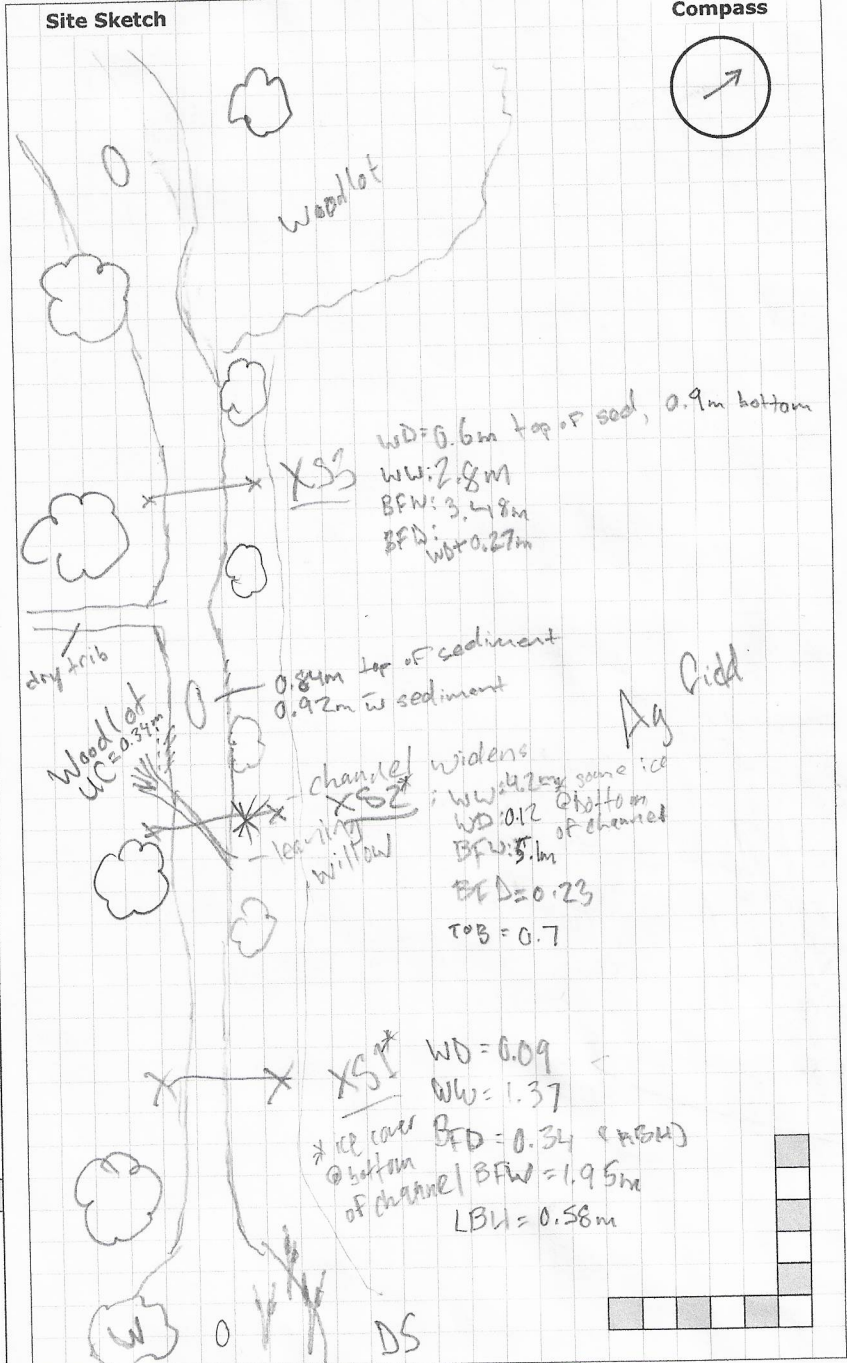 Site Sketch
Compass
Woodlot
XS3
WD=0.6m top of sed, 0.9m bottom
WW: 2.8m
BFW: 3.48m
BFD:
WD+0.27m
dry trib
0.84m top of sediment
0.92m w sediment
Ag Field
Woodlot
UC=0.34m
- channel widens
XS2*
: WW: 4.2m some ice
@bottom
of channel
WD: 0.12
BFW: 5.1m
- leaning
willow
BFD=0.23
TOB = 0.7
XS1*
WD = 0.09
WW= 1.37
* ice cover
@bottom
of channel
BFD = 0.34
BFW = 1.95m
LBH = 0.58m
W
DS